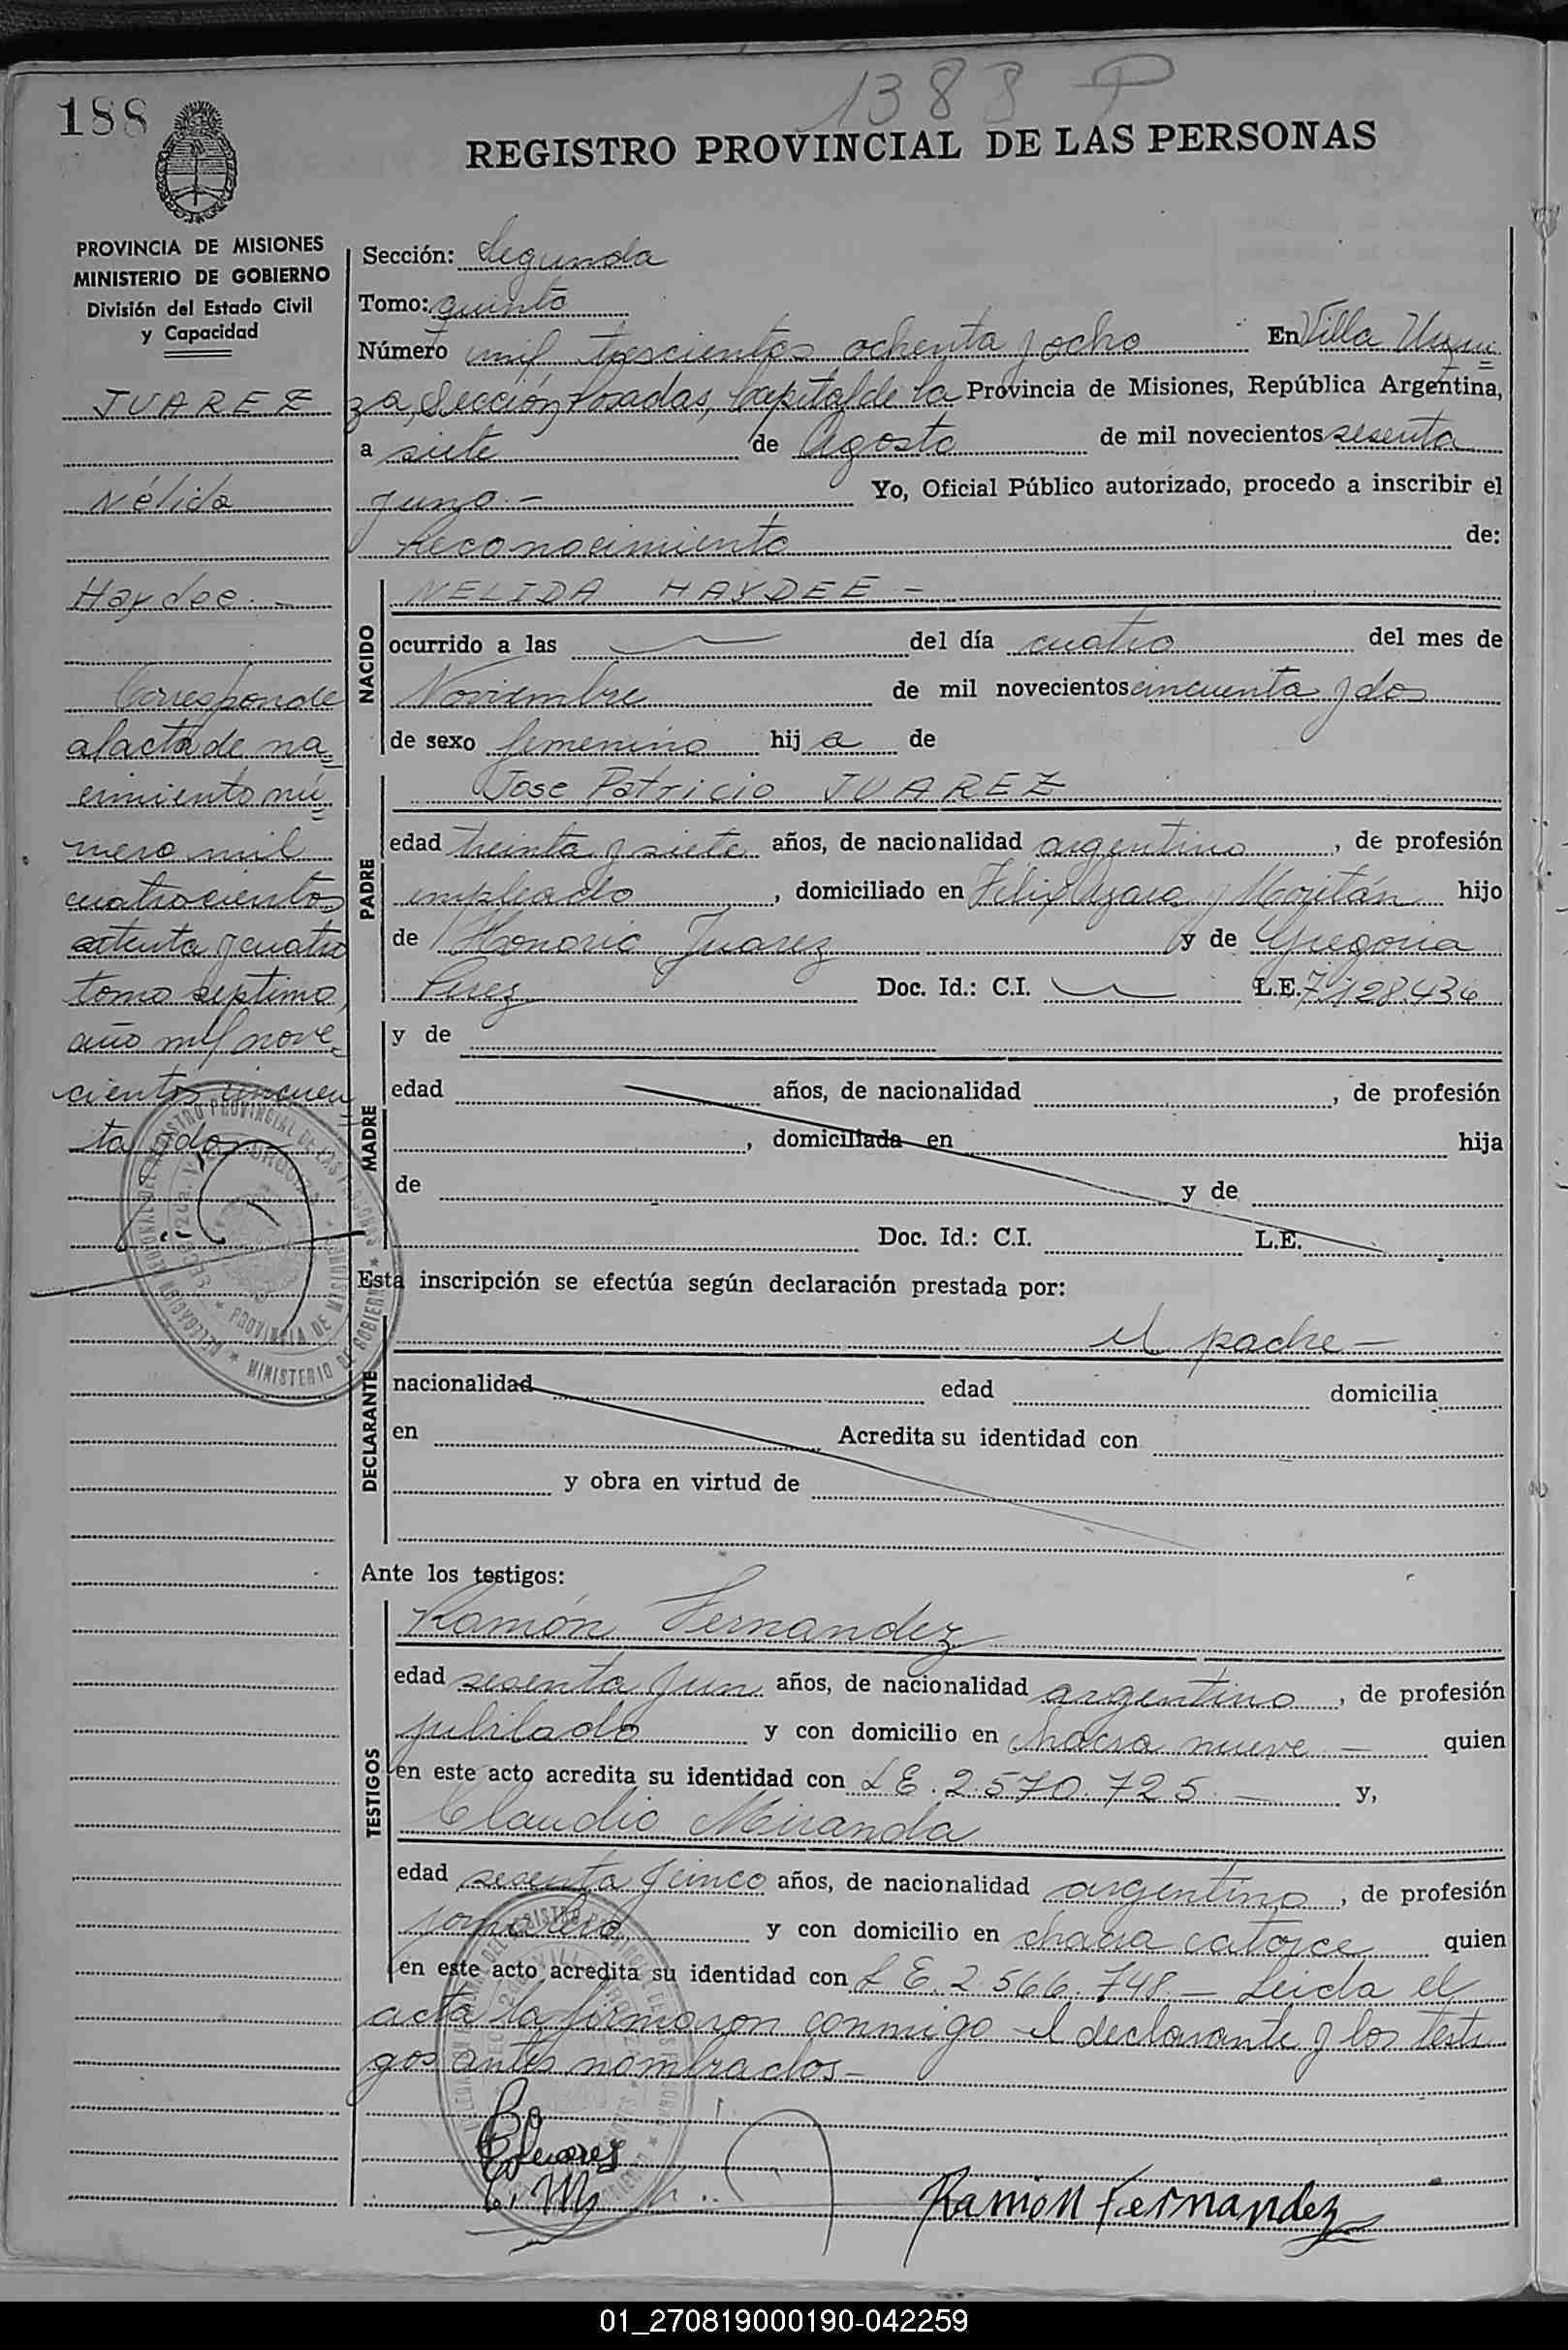 188
1388 P
REGISTRO PROVINCIAL DE LAS PERSONAS
PROVINCIA DE MISIONES
MINISTERIO DE GOBIERNO
División del Estado Civil
y Capacidad
JUAREZ
Nélida
Haydee.-
Corresponde
al acta de na=
cimiento nú=
mero mil
cuatrocientos
setenta y cuatro
tomo septimo,
año mil nove=
cientos cincuen=
ta y dos
Sección: Segunda
Tomo: quinto
Número mil trescientos ochenta y ocho En Villa Urqui=
za, Sección Posadas, Capital de la Provincia de Misiones, República Argentina,
a siete de Agosto de mil novecientos sesenta
y uno.- Yo, Oficial Público autorizado, procedo a inscribir el
Reconocimiento de:
NACIDO
NELIDA HAYDEE -
ocurrido a las — del día cuatro del mes de
Noviembre de mil novecientos cincuenta y dos
de sexo femenino hij a de
PADRE
Jose Patricio JUAREZ
edad treinta y siete años, de nacionalidad argentino, de profesión
empleado, domiciliado en Felix Azara y Mojitán hijo
de Honorio Juarez y de Gregoria
Perez Doc. Id.: C.I. — L.E. 7.128.436
MADRE
y de
edad años, de nacionalidad , de profesión
, domiciliada en hija
de y de
Doc. Id.: C.I. L.E.
Esta inscripción se efectúa según declaración prestada por:
DECLARANTE
el padre —
nacionalidad edad domicilia
en Acredita su identidad con
y obra en virtud de
Ante los testigos:
TESTIGOS
Ramón Fernandez
edad sesenta y un años, de nacionalidad argentino, de profesión
jubilado y con domicilio en chacra nueve — quien
en este acto acredita su identidad con L E. 2.570.725 — y,
Claudio Miranda
edad sesenta y cinco años, de nacionalidad argentino, de profesión
jornalero y con domicilio en chacra catorce quien
en este acto acredita su identidad con L E. 2.566.748.— Leida el
acta la firmaron conmigo el declarante y los testi
gos antes nombrados-
Ramón Fernandez
01_270819000190-042259